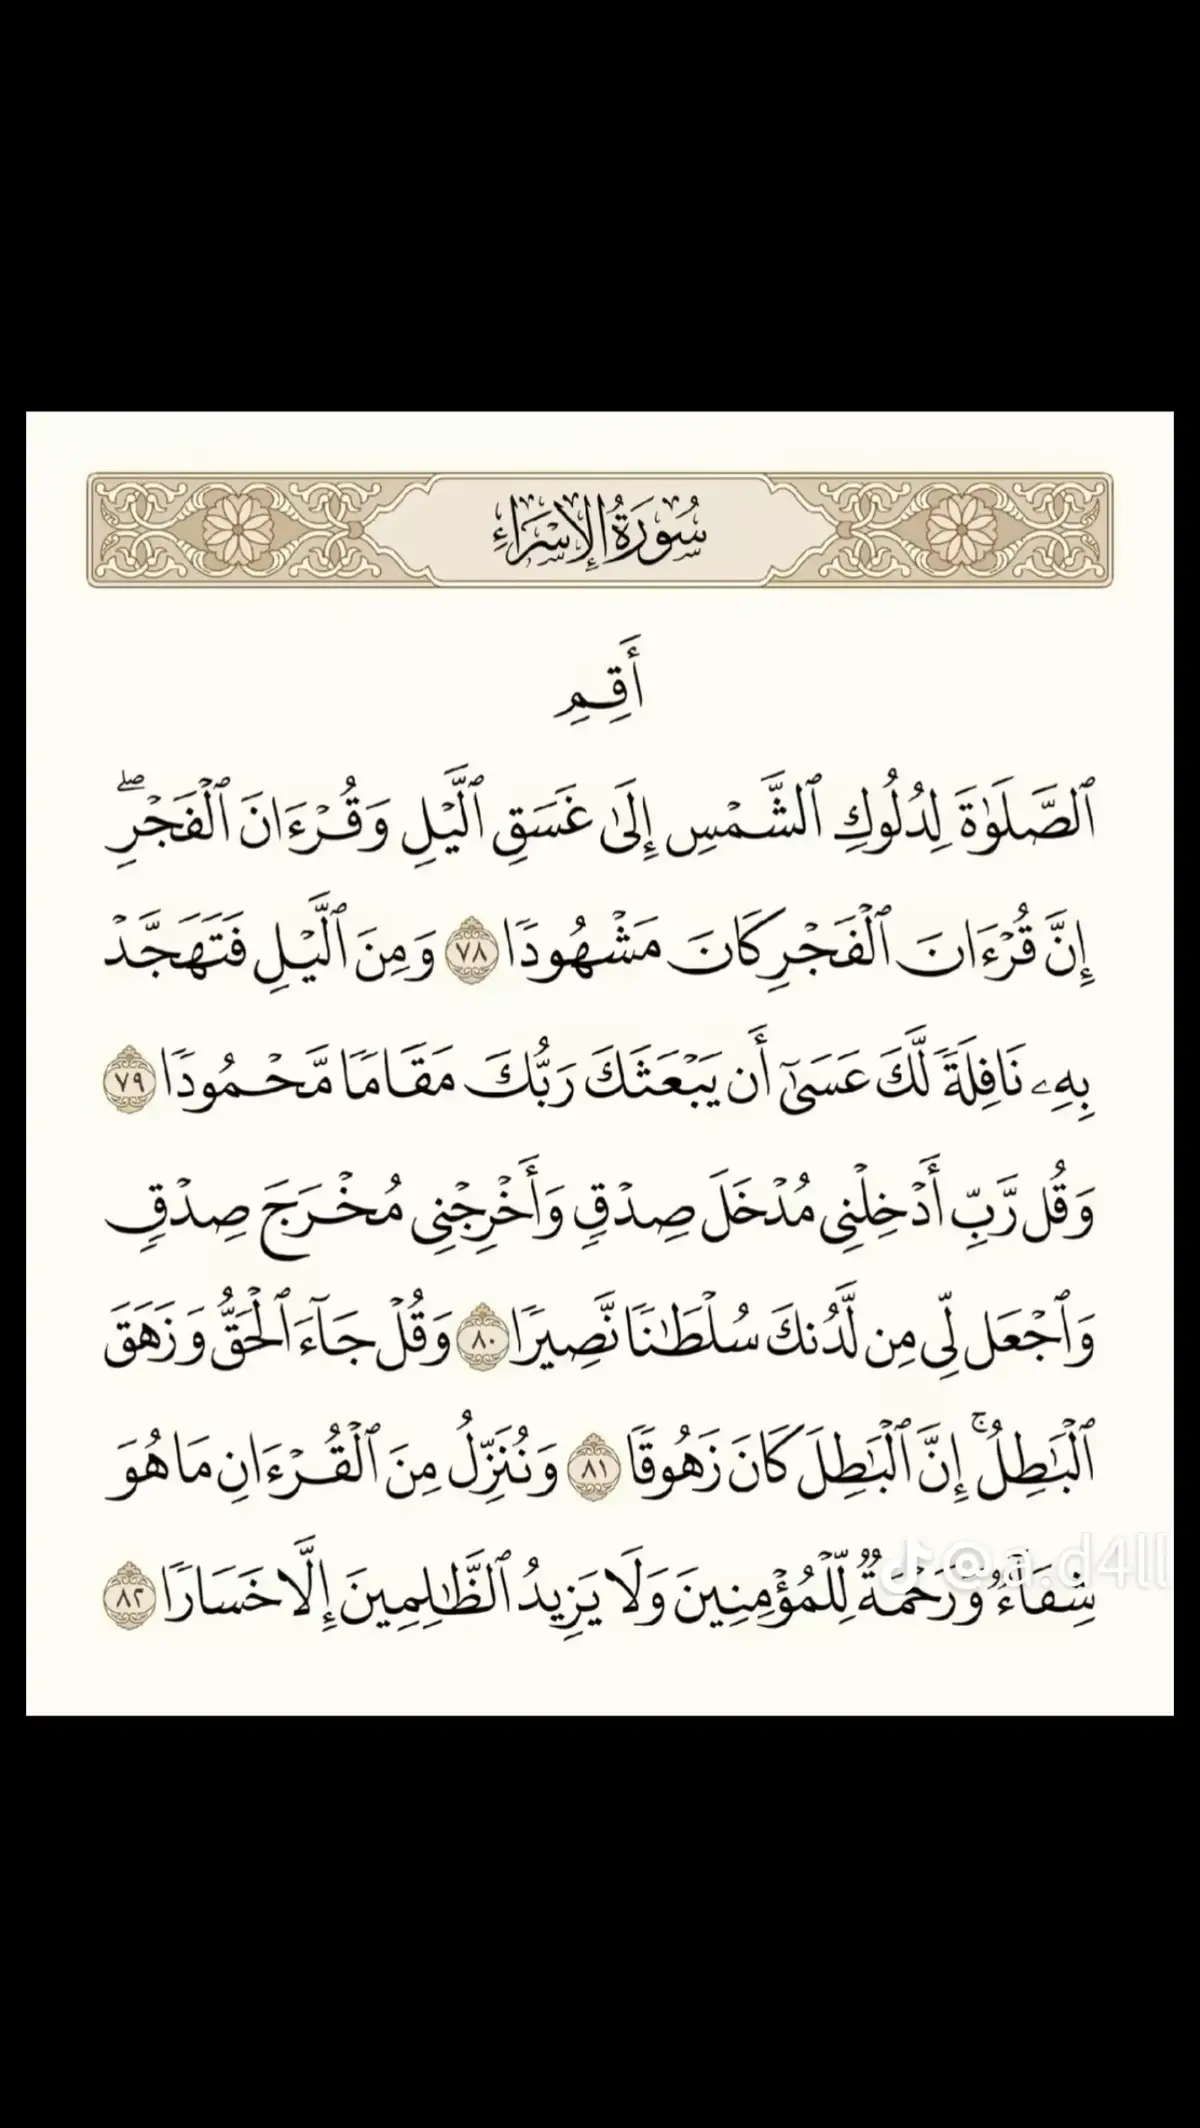 سُورَةُ الإِسْرَاءِ
أَقِمِ
ٱلصَّلَوٰةَ لِدُلُوكِ ٱلشَّمْسِ إِلَىٰ غَسَقِ ٱلَّيْلِ وَقُرْءَانَ ٱلْفَجْرِۖ
إِنَّ قُرْءَانَ ٱلْفَجْرِ كَانَ مَشْهُودًا ٧٨ وَمِنَ ٱلَّيْلِ فَتَهَجَّدْ
بِهِۦ نَافِلَةً لَّكَ عَسَىٰٓ أَن يَبْعَثَكَ رَبُّكَ مَقَامًا مَّحْمُودًا ٧٩
وَقُل رَّبِّ أَدْخِلْنِى مُدْخَلَ صِدْقٍ وَأَخْرِجْنِى مُخْرَجَ صِدْقٍ
وَٱجْعَل لِّى مِن لَّدُنكَ سُلْطَـٰنًا نَّصِيرًا ٨٠ وَقُلْ جَآءَ ٱلْحَقُّ وَزَهَقَ
ٱلْبَـٰطِلُۚ إِنَّ ٱلْبَـٰطِلَ كَانَ زَهُوقًا ٨١ وَنُنَزِّلُ مِنَ ٱلْقُرْءَانِ مَا هُوَ
شِفَآءٌ وَرَحْمَةٌ لِّلْمُؤْمِنِينَ وَلَا يَزِيدُ ٱلظَّـٰلِمِينَ إِلَّا خَسَارًا ٨٢
@a.d4ll